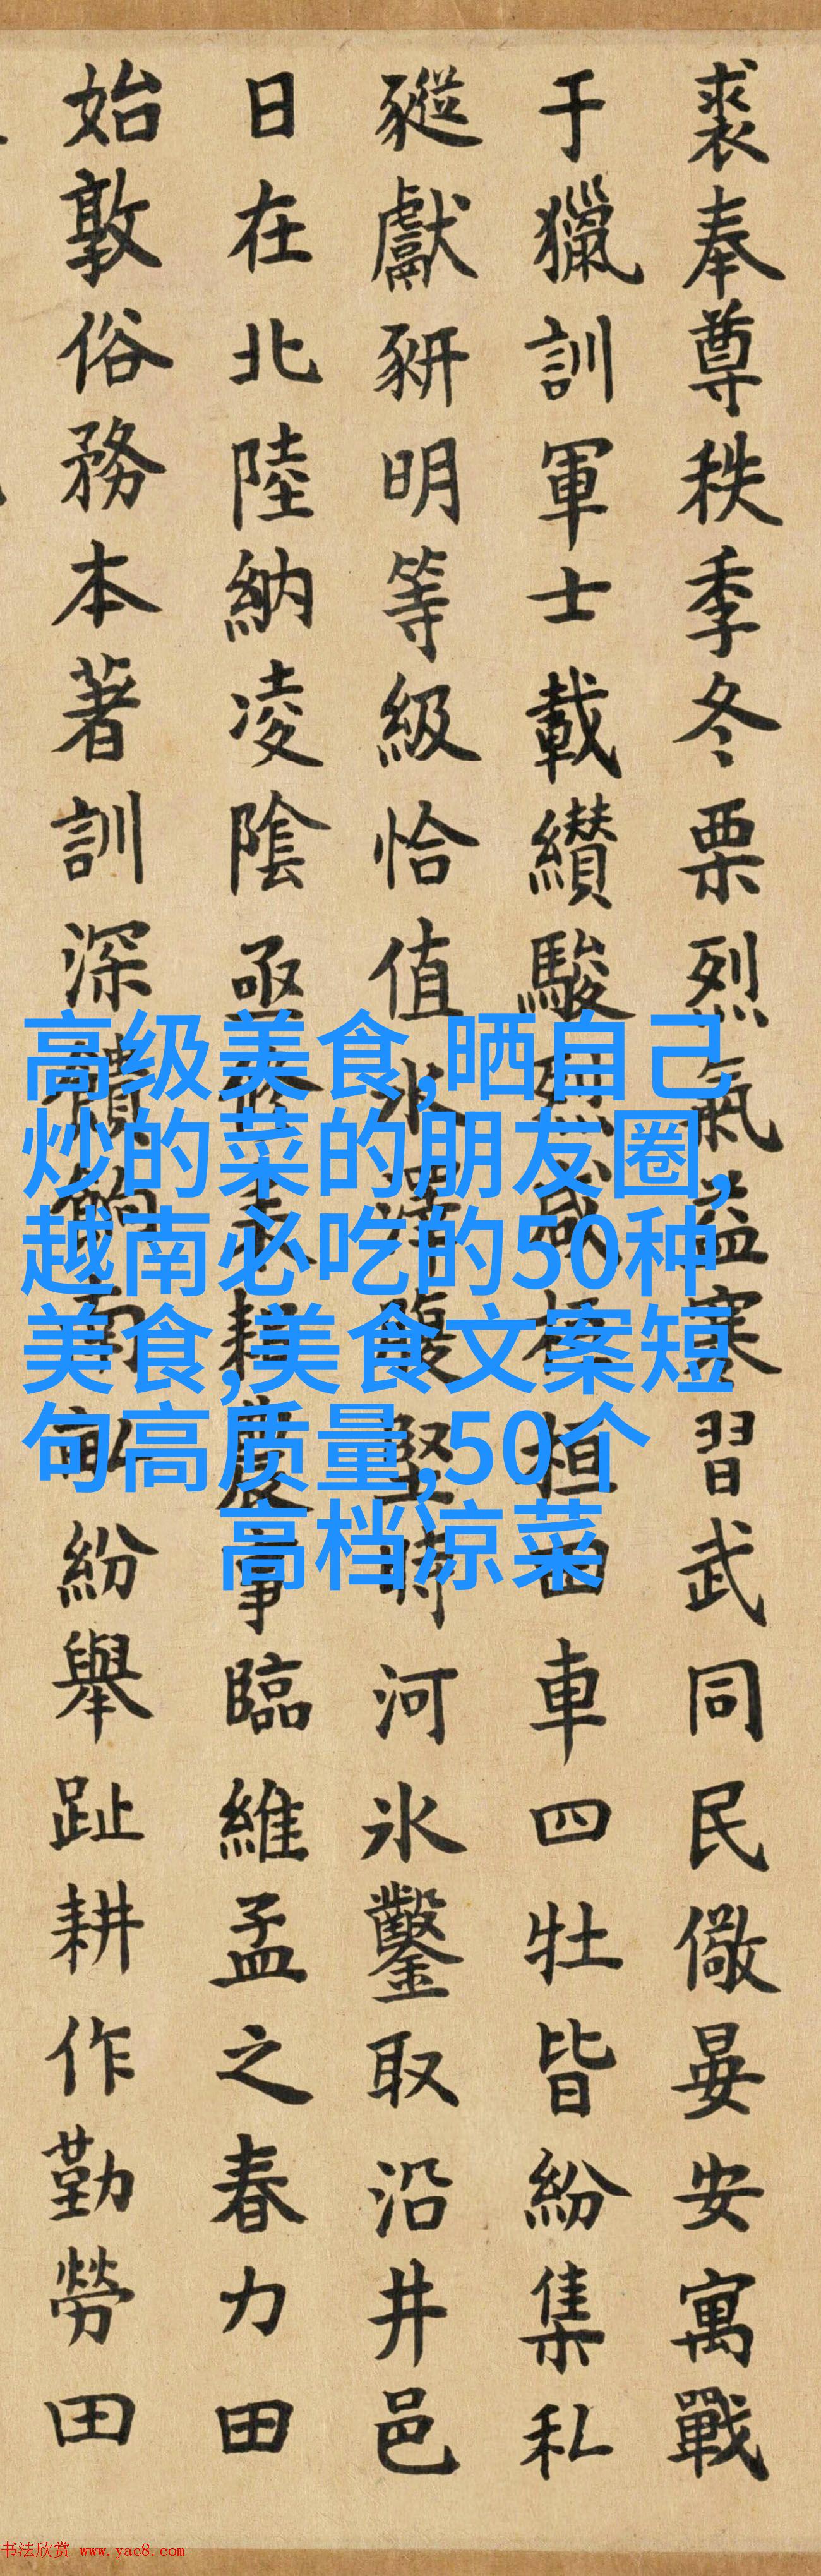 裘奉尊秩季冬栗烈氣益寒習武同民儆晏安寓戰
于獵訓軍士載纘駿烈咸桓桓四車四牡皆紛集私
豵獻豜明等級恰值水澤腹堅時河氷鑿取沿井邑
日在北陸納凌陰亟耒耜農事臨維孟之春力田
始敦俗務本著訓深饋餉南畝紛舉趾耕作勤勞田
高级美食,晒自己
炒的菜的朋友圈,
越南必吃的50种
美食,美食文案短
句高质量,50个
高档凉菜
书法欣赏 www.yac8.com